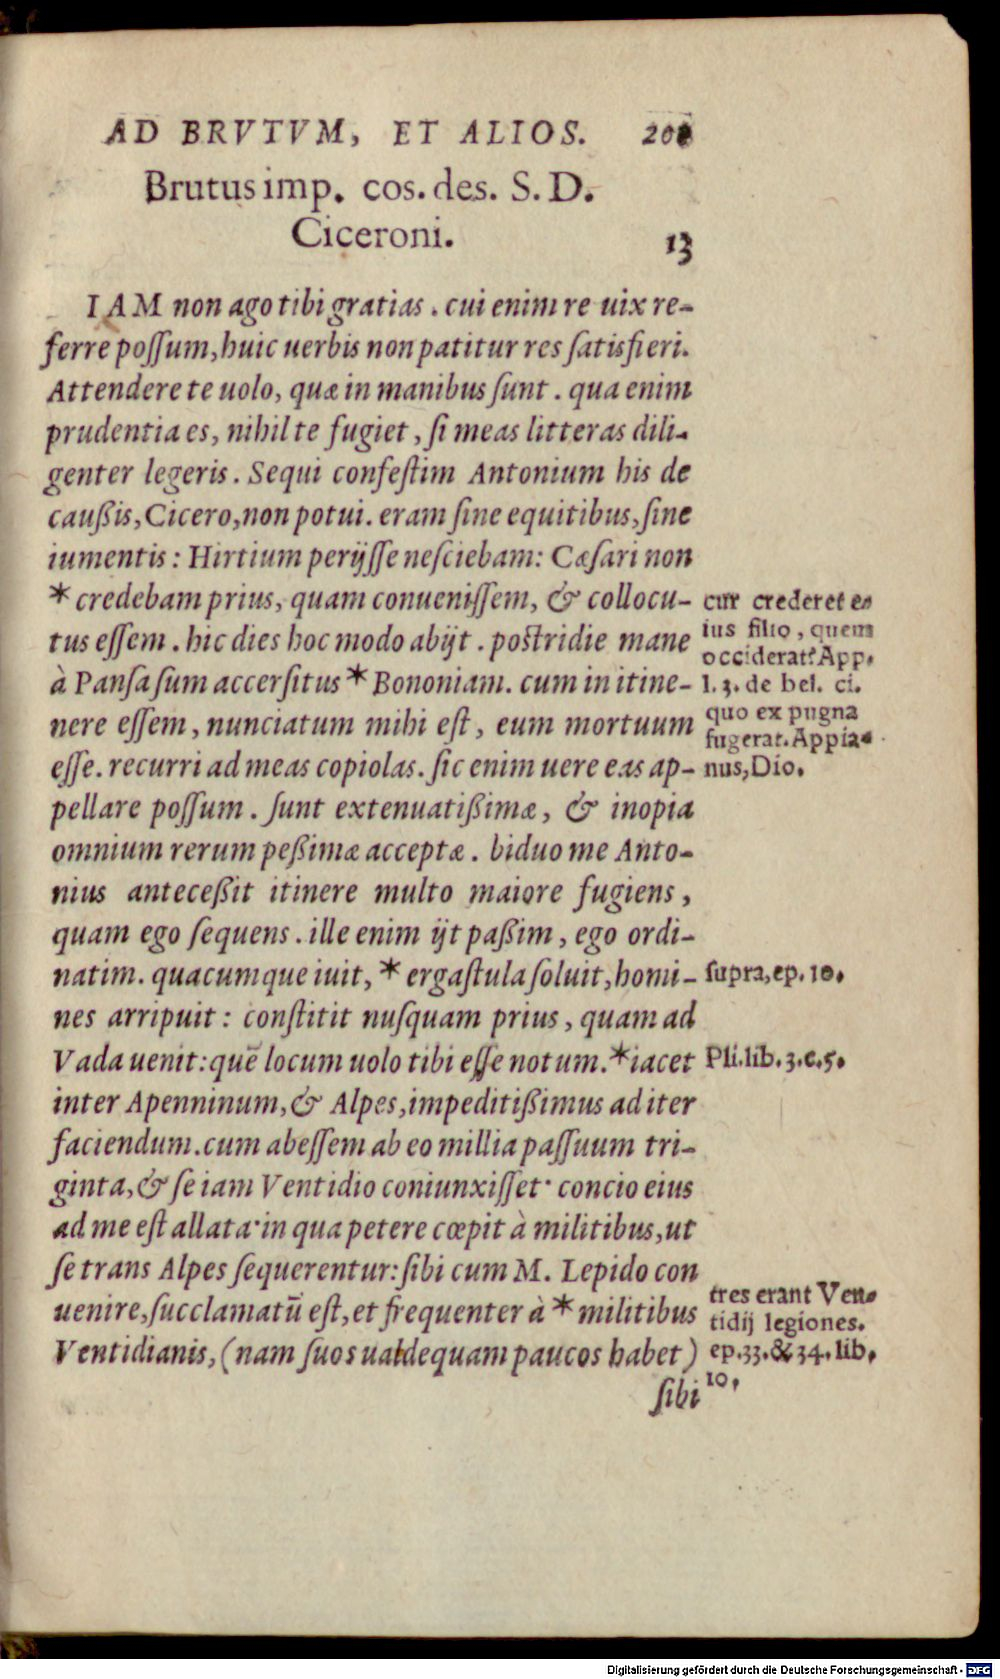 AD BRVTVM, ET ALIOS.
Brutus imp. cos. des. S. D.
Ciceroni. 13
IAM non ago tibi gratias. cui enim re uix re-
ferre possum, huic uerbis non patitur res satisfieri.
Attendere te uolo, quæ in manibus sunt. qua enim
prudentia es, nihil te fugiet, si meas litteras dili-
genter legeris. Sequi confestim Antonium his de
caußis, Cicero, non potui. eram sine equitibus, sine
iumentis: Hirtium perijsse nesciebam: Cæsari non
* credebam prius, quam conuenissem, & collocu-
tus essem. hic dies hoc modo abijt. postridie mane
à Pansa sum accersitus * Bononiam. cum in itine-
nere essem, nunciatum mihi est, eum mortuum
esse. recurri ad meas copiolas. sic enim uere eas ap-
pellare possum. sunt extenuatißimæ, & inopia
omnium rerum peßimæ acceptæ. biduo me Anto-
nius anteceßit itinere multo maiore fugiens,
quam ego sequens. ille enim ijt paßim, ego ordi-
natim. quacumque iuit, * ergastula soluit, homi-
nes arripuit: constitit nusquam prius, quam ad
Vada uenit: quē locum uolo tibi esse notum. * iacet
inter Apenninum, & Alpes, impeditißimus ad iter
faciendum. cum abessem ab eo millia passuum tri-
ginta, & se iam Ventidio coniunxisset· concio eius
ad me est allata· in qua petere cœpit à militibus, ut
se trans Alpes sequerentur: sibi cum M. Lepido con
uenire, succlamatū est, et frequenter à * militibus
Ventidianis, (nam suos ualde quam paucos habet)
sibi
cur crederet e-
ius filio, quem
occiderat? App.
l. 3. de bel. ci.
quo ex pugna
fugerat. Appia-
nus, Dio.
supra, ep. 10.
Pli. lib. 3. c. 5.
tres erant Ven-
tidij legiones.
ep. 33. & 34. lib.
10.
Digitalisierung gefördert durch die Deutsche Forschungsgemeinschaft - DFG